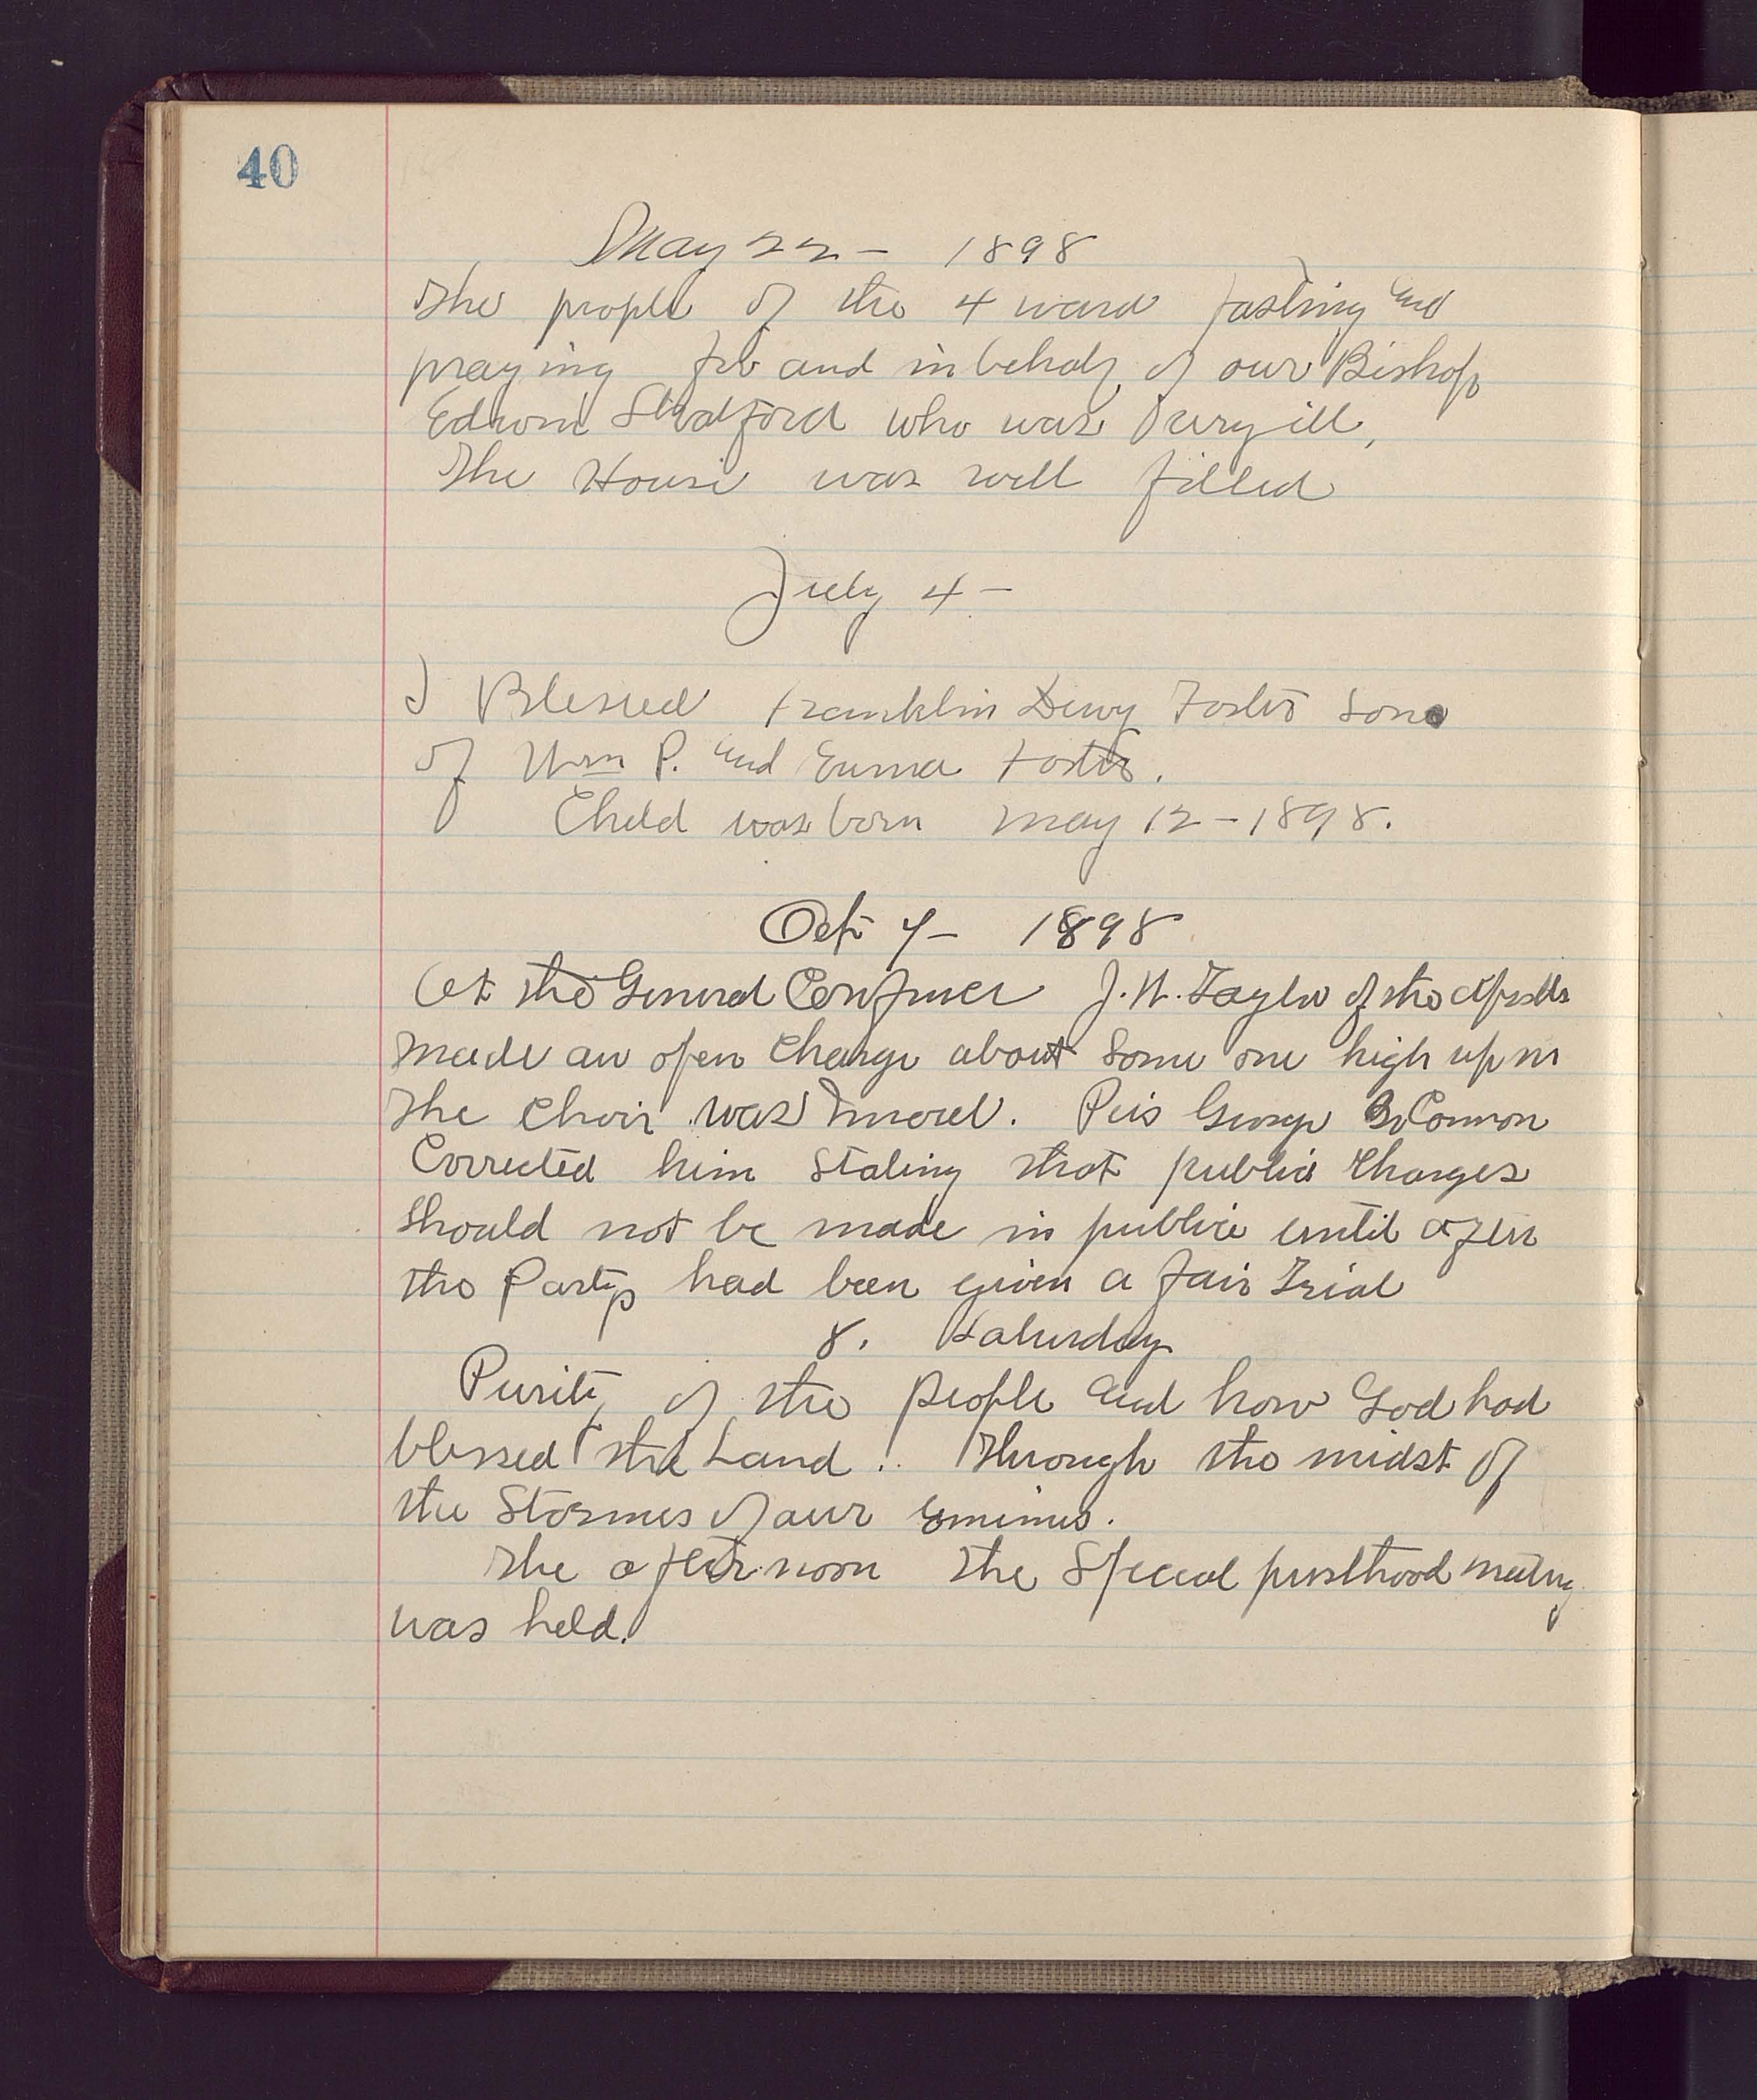 40
May 22 - 1898
The people of the 4 ward fasting and
praying for and in behalf of our Bishop
Edwin Stratford who was very ill,
The House was well filled
July 4 -
I Blessed Franklin Dewy Foster Son
of Wm P. and Emma Foster.
Child was born May 12 - 1898.
Oct 7 - 1898
At the General Confrnce J. W. Taylor of the Apostles
made an open Charge about Some one high up in
The Choir was Imoral. Pres George Q Cannon
Corrected him Stating that public Charges
Should not be made in public until after
the Partys had been given a fair Trial
8. Saturday
Purity of the people and how God had
blessed the Land. Through the midst of
the Stormes of our Eminies.
The afternoon the Special priesthood meeting
was held.